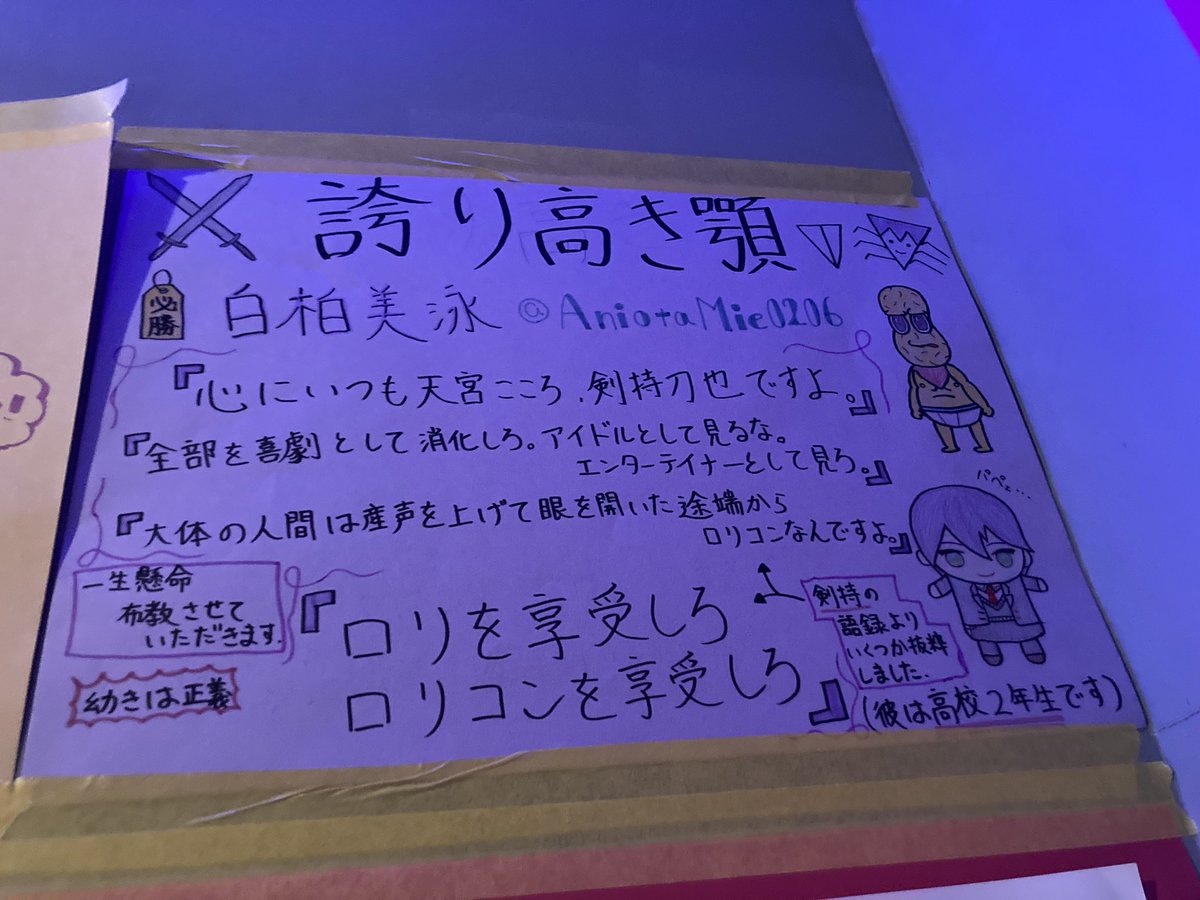 誇り高き顎
必勝
白柏美泳 @AniotaMie0206
『心にいつも天宮こころ、剣持刀也ですよ。』
『全部を喜劇として消化しろ。アイドルとして見るな。
エンターテイナーとして見ろ。』
パペェ…
『大体の人間は産声を上げて眼を開いた途端から
ロリコンなんですよ。』
一生懸命
布教させて
いただきます.
幼きは正義
『ロリを享受しろ
ロリコンを享受しろ』
剣持の
語録より
いくつか抜粋
しました.
(彼は高校2年生です)